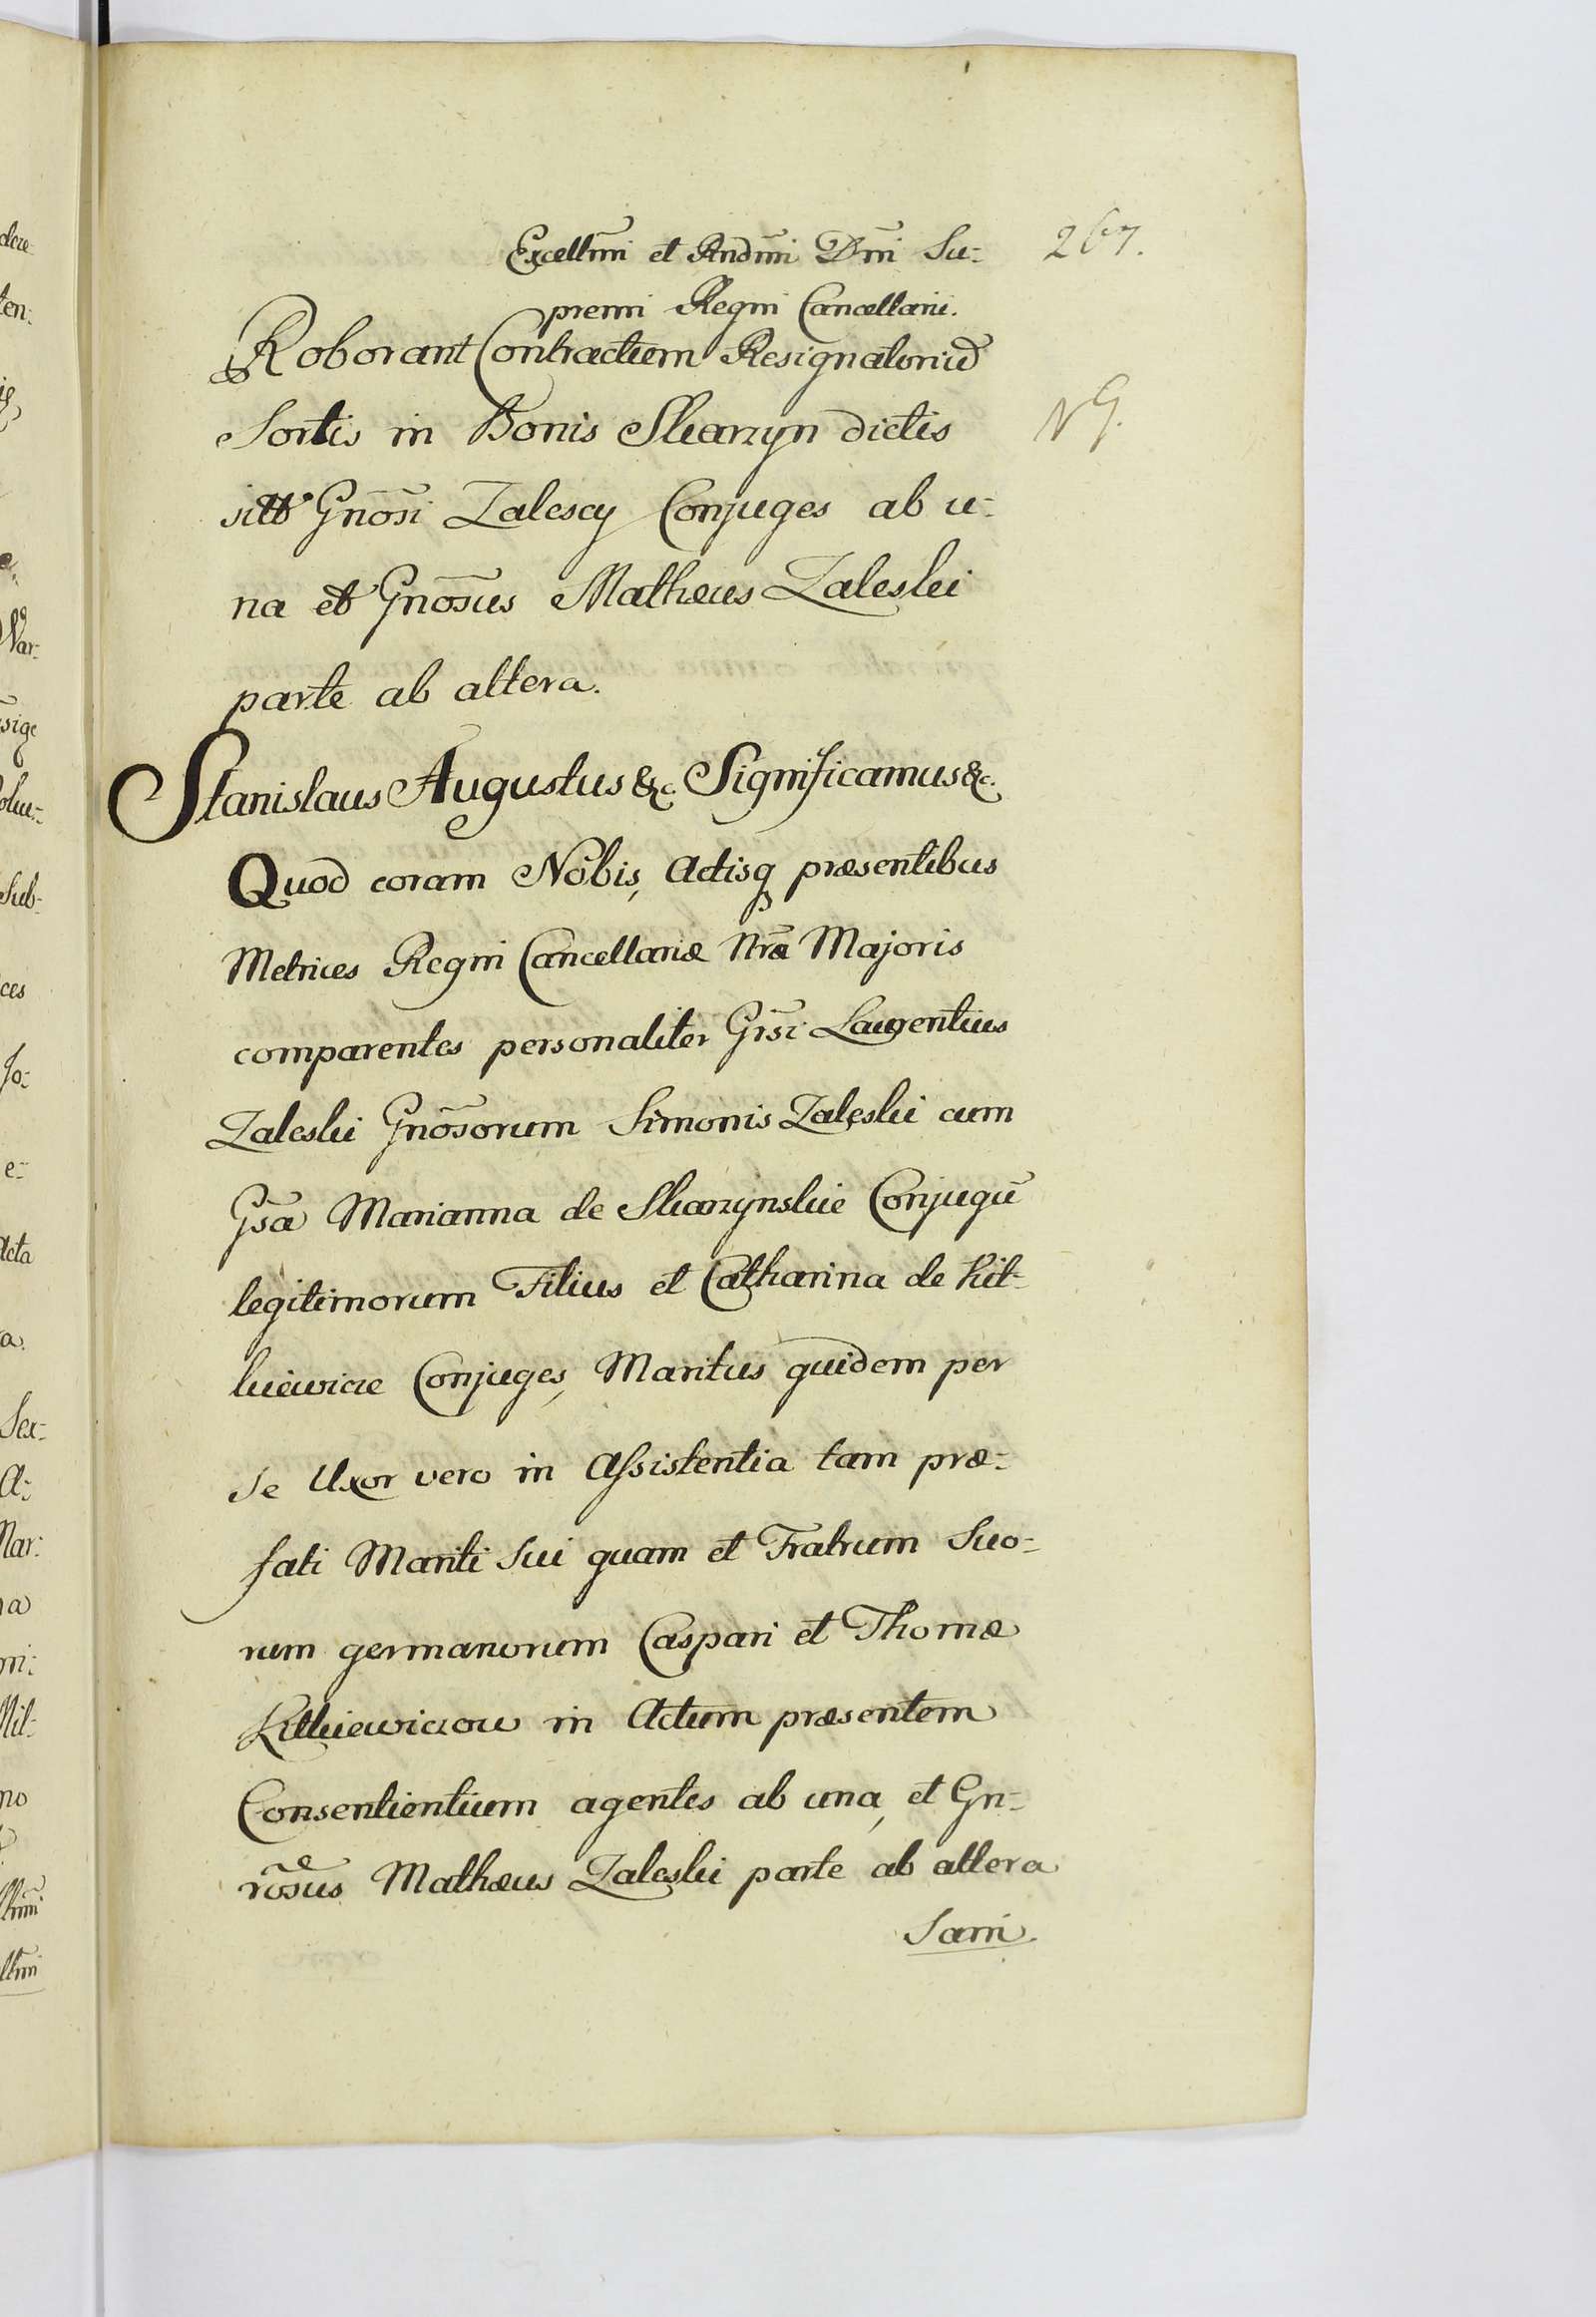 Excellm̃i et Rndm̃i Dm̃i Su-
267.
premi Regni Cancellarii.
Roborant Contractum Resignatoriũ
Sortis in Bonis Skarzyn dictis
N 9.
sitt Gnõsi Zalescy Conjuges ab u-
na et Gnõsus Mathæus Zaleski
parte ab altera.
Stanislaus Augustus &c. Significamus &c.
Quod coram Nobis, Actisq præsentibus
Metrices Regni Cancellariæ Nrã Majoris
comparentes personaliter Gr̃si Laurentius
Zaleski Gnõsorum Simonis Zaleski cum
Gsã Marianna de Skarzynskie Conjugũ
legitimorum Filius et Catharina de Kit-
kiewicze Conjuges, Maritus quidem per
se Uxor vero in Assistentia tam præ-
fati Mariti Sui quam et Fratrum Suo-
rum germanorum Caspari et Thomæ
Kitkiewiczow in Actum præsentem
Consentientium agentes ab una, et Gn-
rõsus Mathæus Zaleski parte ab altera
Sani